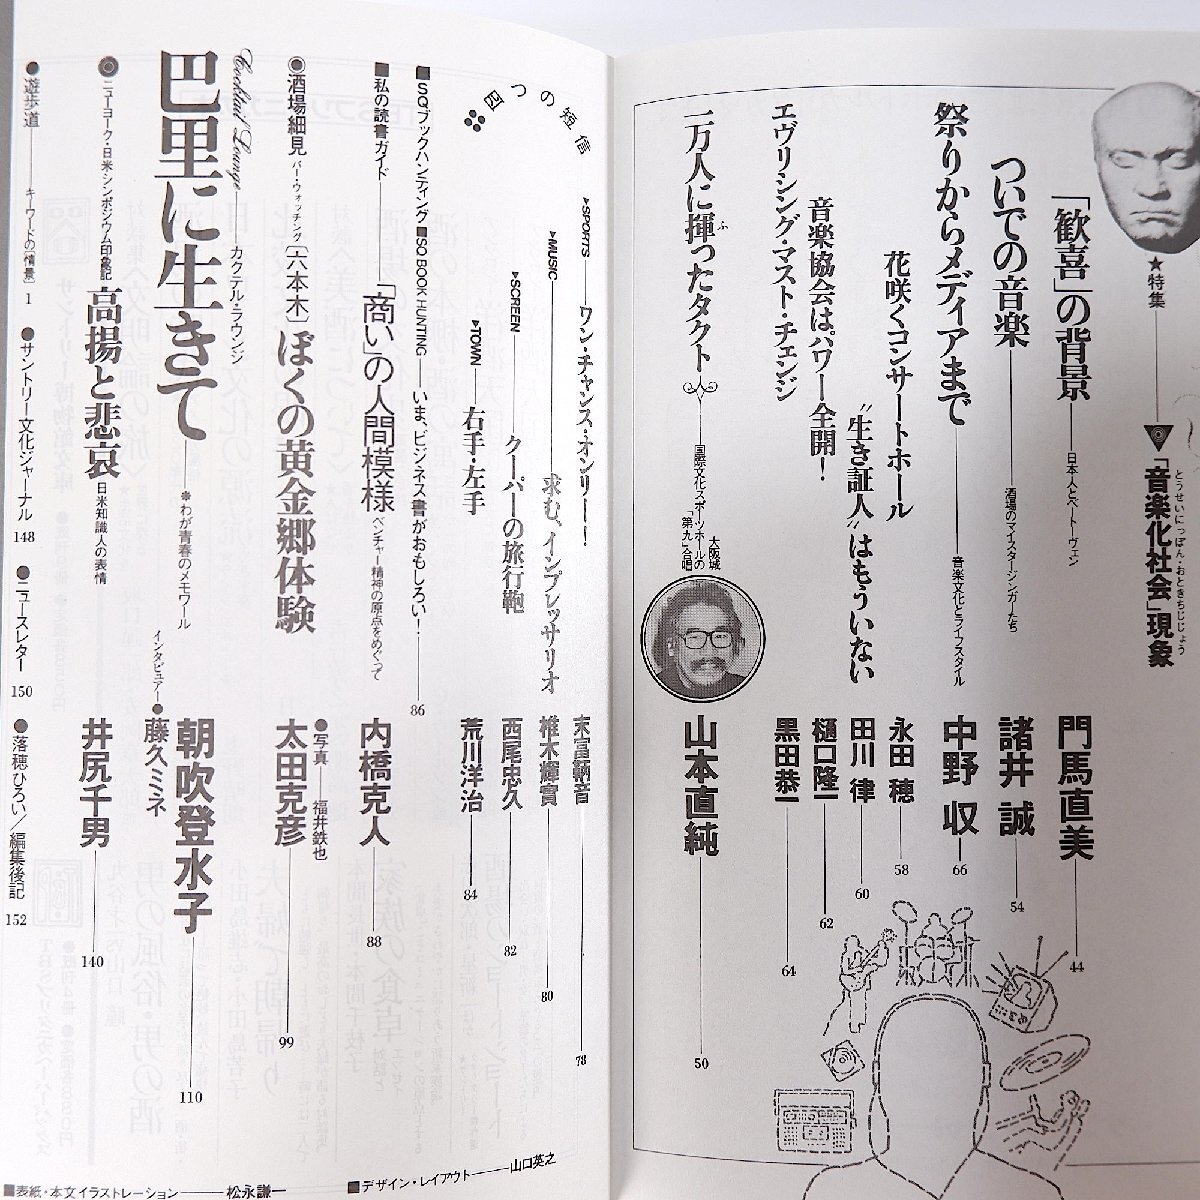 ★特集
「音楽化社会」現象
とうせいにっぽん・おときちじじょう
「歓喜」の背景
日本人とベートーヴェン
門馬直美
44
ついでの音楽
酒場のマイスタージンガーたち
諸井 誠
54
祭りからメディアまで
音楽文化とライフスタイル
中野 収
66
花咲くコンサートホール
永田 穂
58
〝生き証人〟はもういない
田川 律
60
音楽協会はパワー全開!
樋口隆一
62
エヴリシング・マスト・チェンジ
黒田恭一
64
一万人に揮ったタクト
ふ
大阪城
国際文化スポーツホールの
「第九」合唱
山本直純
50
四つの短信
▶SPORTS
ワン・チャンス・オンリー!
末冨鞆音
78
▶MUSIC
求む、インプレッサリオ
椎木輝實
80
▶SCREEN
クーパーの旅行鞄
西尾忠久
82
▶TOWN
右手・左手
荒川洋治
84
■SQブックハンティング■SQ BOOK HUNTING
いま、ビジネス書がおもしろい!
86
■私の読書ガイド
「商い」の人間模様
ベンチャー精神の原点をめぐって
内橋克人
88
◉酒場細見
バー・ウォッチング
〔六本木〕ぼくの黄金郷体験
●写真――福井鉄也
太田克彦
99
Cocktail Lounge
カクテル・ラウンジ
巴里に生きて
＊わが青春のメモワール
朝吹登水子
インタビュアー●藤久ミネ
110
◎ニューヨーク・日米シンポジウム印象記
高揚と悲哀
日米知識人の表情
井尻千男
140
●遊歩道
キーワードの〔情景〕
1
●サントリー文化ジャーナル
148
●ニュースレター
150
●落穂ひろい／編集後記
152
■デザイン・レイアウト――山口英之
■表紙・本文イラストレーション――松永謙一